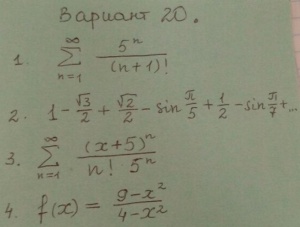 Вариант 20.
1. ∑_{n=1}^{∞} 5^n / (n+1)!
2. 1 - √3/2 + √2/2 - sin π/5 + 1/2 - sin π/7 + ...
3. ∑_{n=1}^{∞} (x+5)^n / n! 5^n
4. f(x) = 9-x^2 / 4-x^2